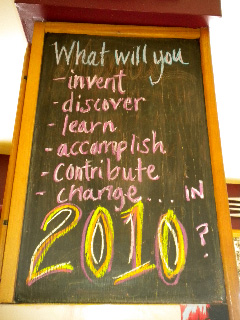 What will you
- invent
- discover
- learn
- accomplish
- contribute
- change... in
2010?